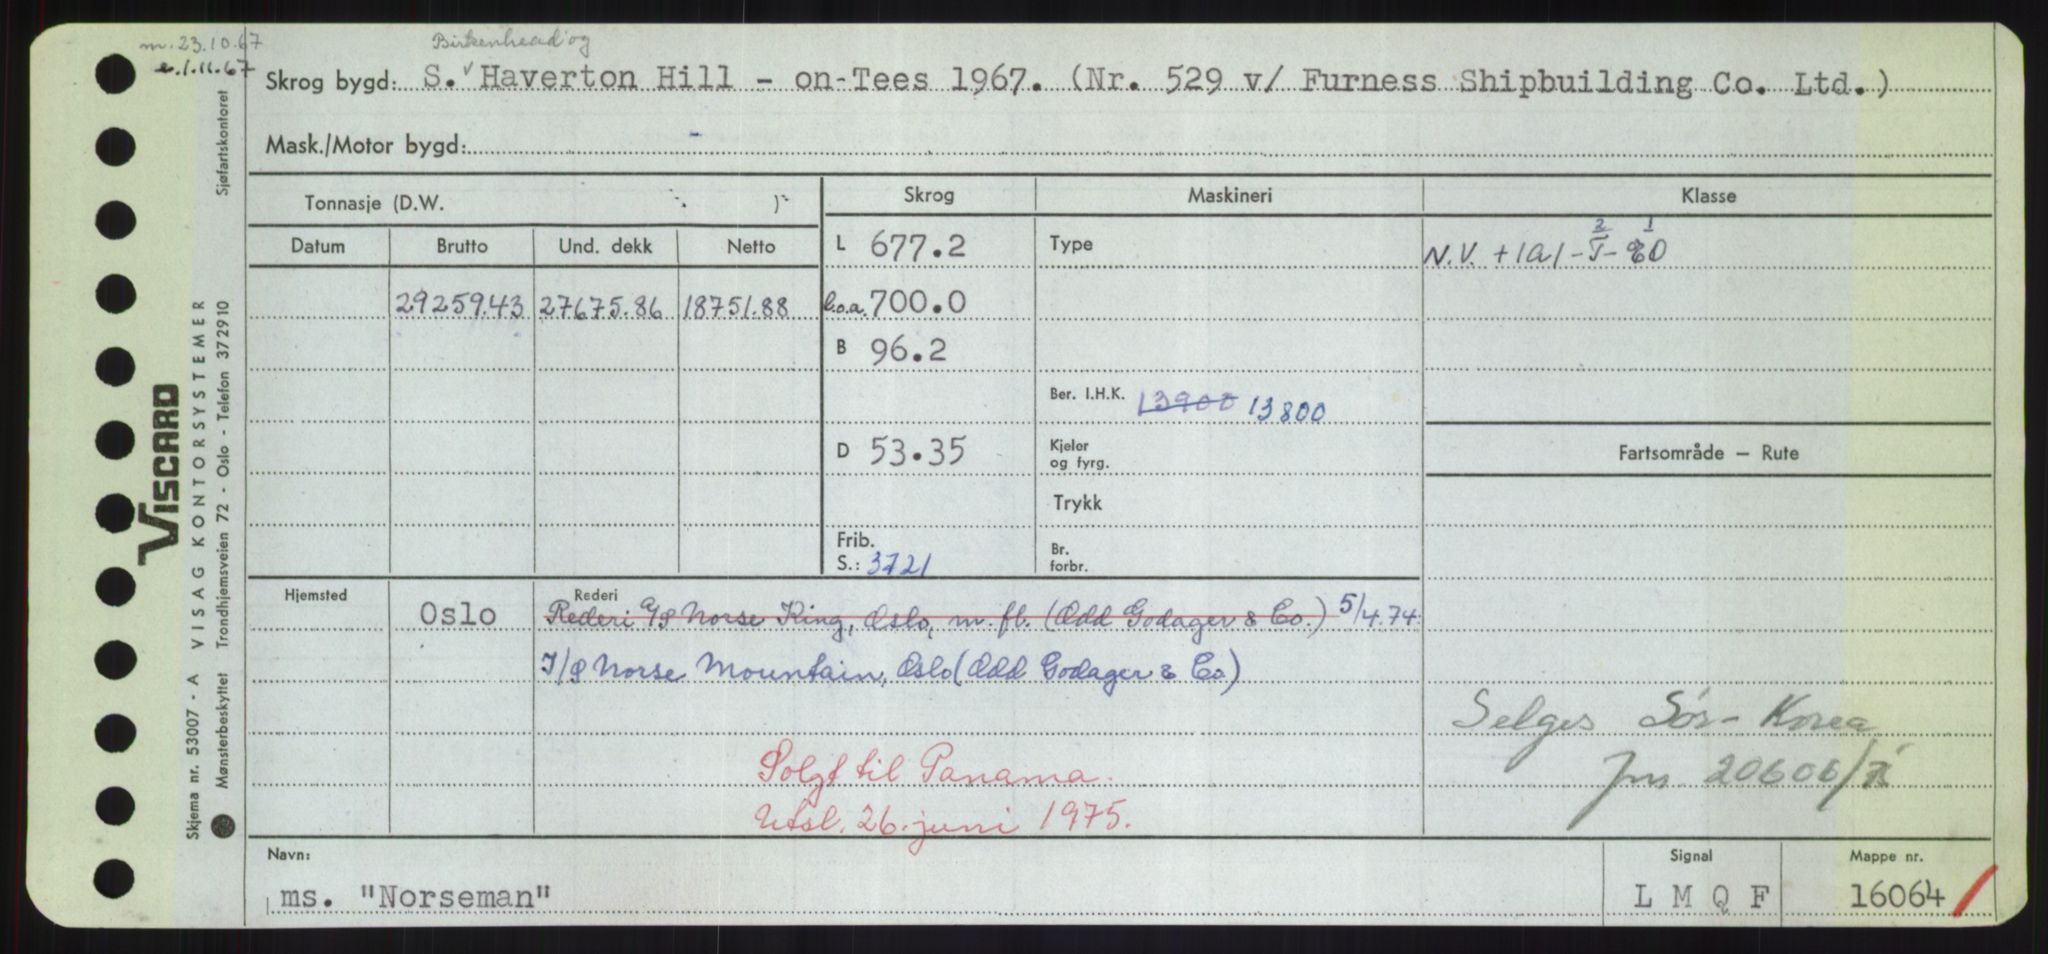 m. 23.10.67
e. 1.11.67
Birkenhead og
Skrog bygd: S. v Haverton Hill - on-Tees 1967. (Nr. 529 v/ Furness Shipbuilding Co. Ltd.)
Mask./Motor bygd: -
Tonnasje (D.W. )
Skrog
Maskineri
Klasse
Datum Brutto Und. dekk Netto
L 677.2
Type
2 1
N.V. +1A1-T-EO
29259.43 27675.86 18751.88
l.o.a. 700.0
B 96.2
Ber. I.H.K. 13900 13800
D 53.35
Kjeler
og fyrg.
Fartsområde – Rute
Trykk
Frib.
S.: 3721
Br.
forbr.
Hjemsted
Oslo
Rederi
Rederi A/S Norse King, Oslo, m. fl. (Odd Godager & Co.) 5/4.74.
I/S Norse Mountain, Oslo (Odd Godager & Co)
Selges Sør-Korea
Solgt til Panama.
jnr 20606/
Utsl. 26. juni 1975.
Navn:
ms. "Norseman"
Signal
L M Q F
Mappe nr.
16064
VISCARD
VISAG KONTORSYSTEMER
Skjema nr. 53007 - A
Mønsterbeskyttet Trondhjemsveien 72 - Oslo - Telefon 372910
Sjøfartskontoret